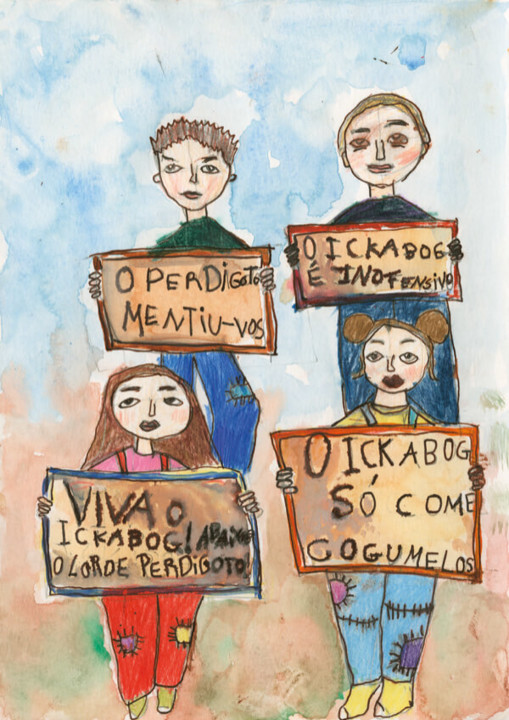 O PERDIGOTO
MENTIU-VOS
O ICKABOG
É INOFENSIVO
VIVA O
ICKABOG! ABAIXO
O LORDE PERDIGOTO!
O ICKABOG
SÓ COME
COGUMELOS